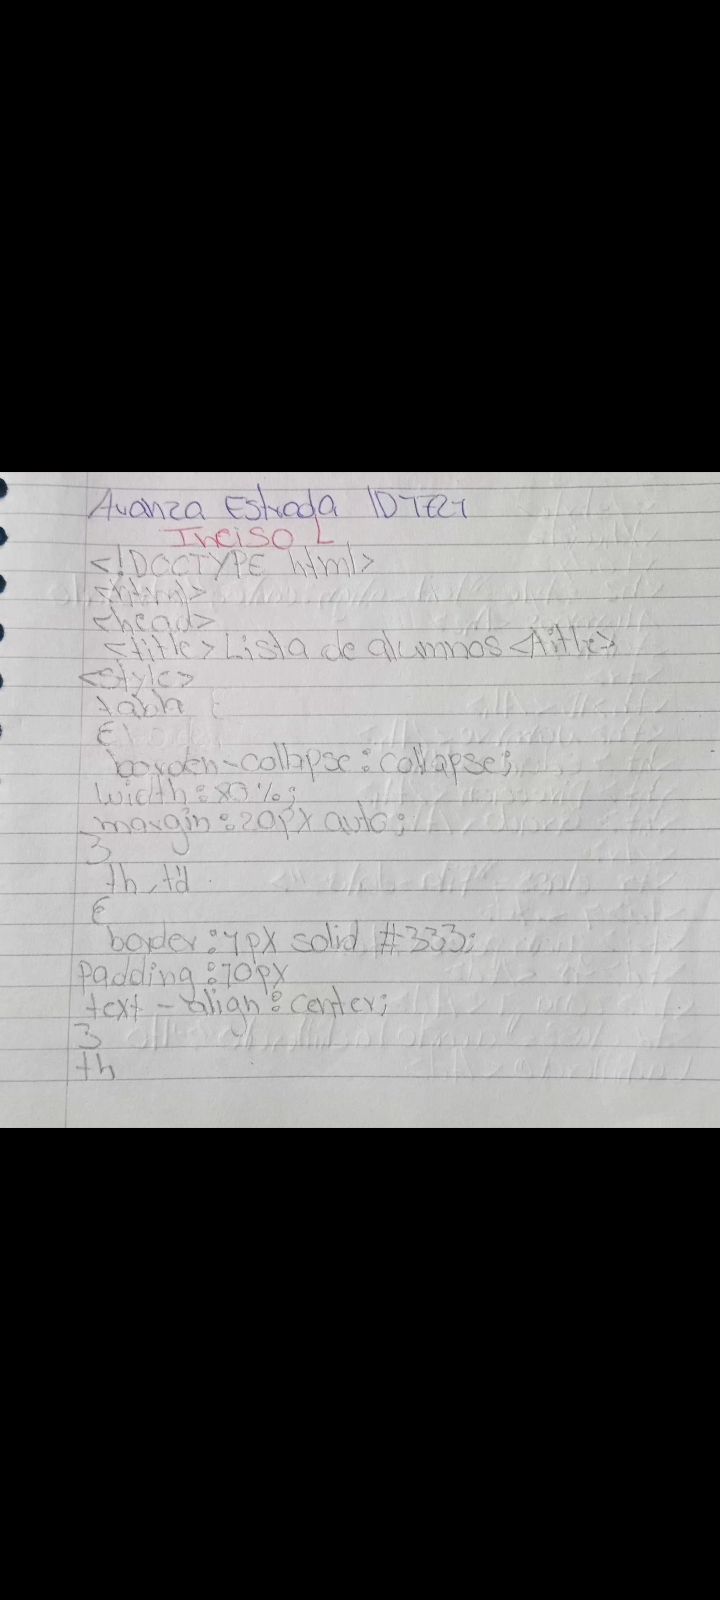 Avanza Estrada ID
Inciso L
<!DOCTYPE html>
<html>
<head>
<title>Lista de alumnos</title>
<style>
{
border-collapse: collapse;
width: 80%;
margin: 20px auto;
}
th, td
{
border: 1px solid #333;
padding: 10px
text-align: center;
}
th